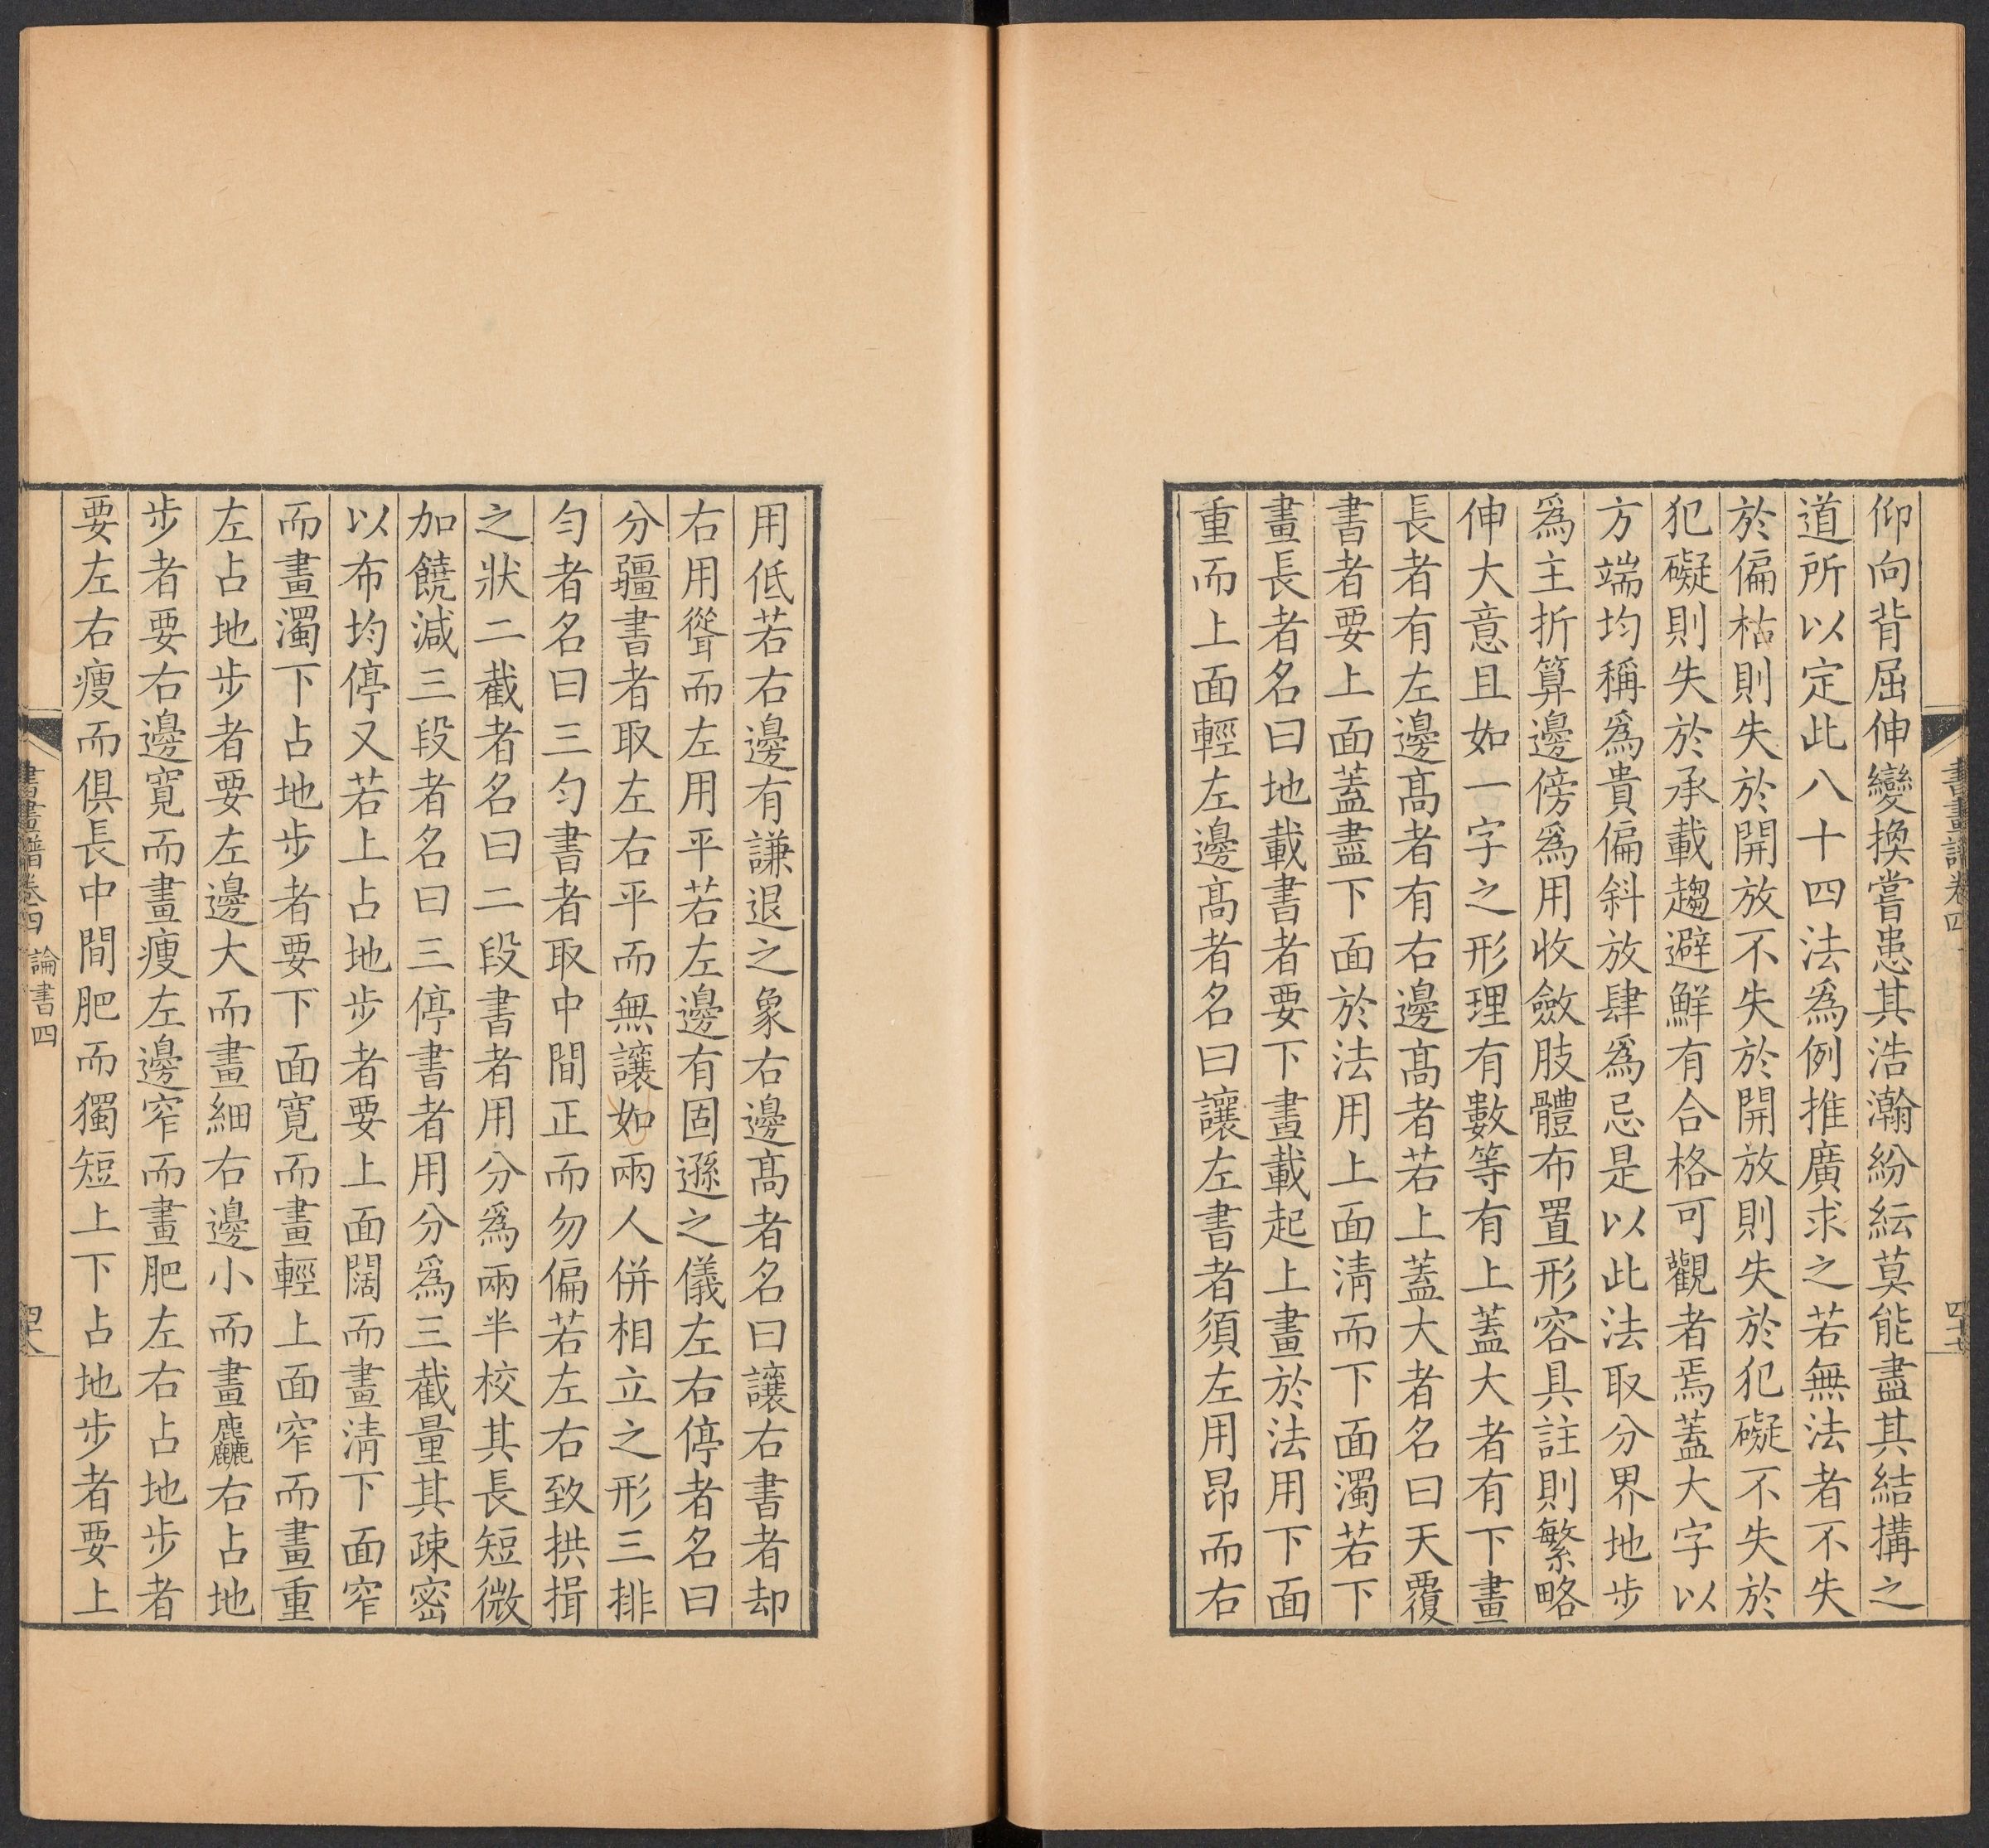 仰向背屈伸變換嘗患其浩瀚紛紜莫能盡其結搆之
道所以定此八十四法爲例推廣求之若無法者不失
於偏枯則失於開放不失於開放則失於犯礙不失於
犯礙則失於承載趨避鮮有合格可觀者焉蓋大字以
方端均稱爲貴偏斜放肆爲忌是以此法取分界地步
爲主折算邊傍爲用收斂肢體布置形容具註則繁略
伸大意且如一字之形理有數等有上蓋大者有下畫
長者有左邊髙者有右邊髙者若上蓋大者名曰天覆
書者要上面蓋盡下面於法用上面淸而下面濁若下
畫長者名曰地載書者要下畫載起上畫於法用下面
重而上面輕左邊髙者名曰讓左書者須左用昂而右
書畫譜卷四
四十七
用低若右邊有謙退之象右邊髙者名曰讓右書者却
右用聳而左用平若左邊有固遜之儀左右停者名曰
分疆書者取左右平而無讓如兩人併相立之形三排
匀者名曰三匀書者取中間正而勿偏若左右致拱揖
之狀二截者名曰二段書者用分爲兩半校其長短微
加饒減三段者名曰三停書者用分爲三截量其疎密
以布均停又若上占地步者要上面闊而畫淸下面窄
而畫濁下占地步者要下面寛而畫輕上面窄而畫重
左占地步者要左邊大而畫細右邊小而畫麤右占地
步者要右邊寛而畫瘦左邊窄而畫肥左右占地步者
要左右瘦而俱長中間肥而獨短上下占地步者要上
書畫譜卷四 論書四
四十八